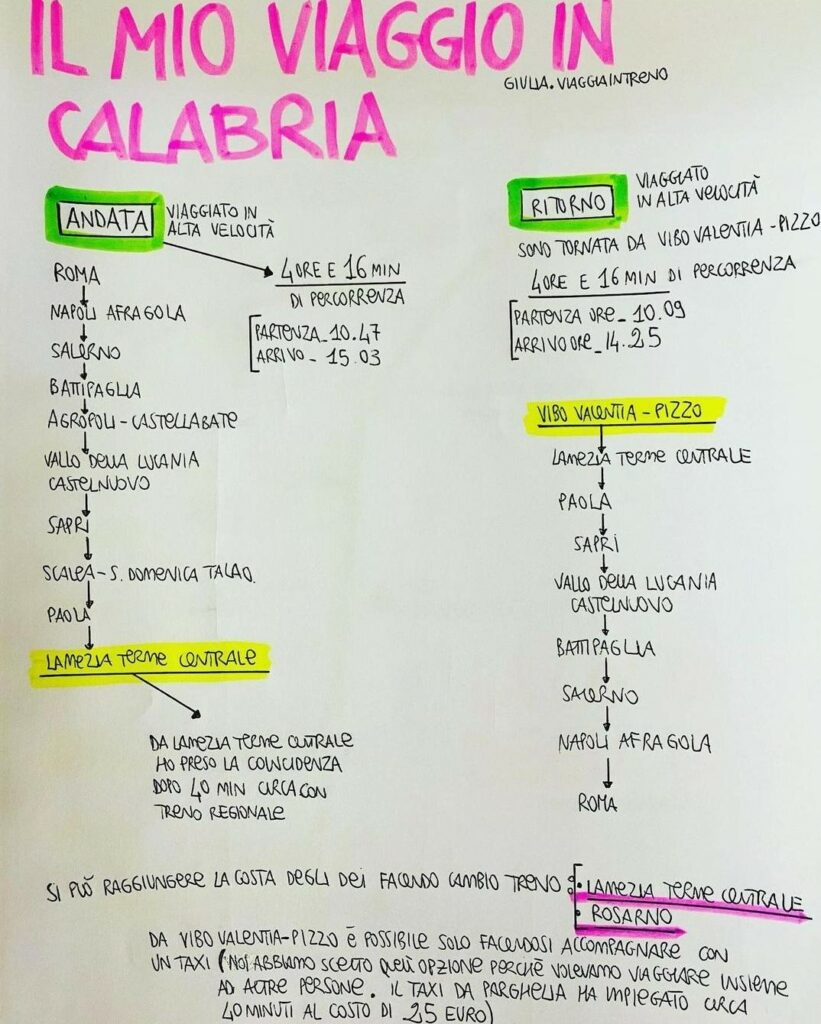 IL MIO VIAGGIO IN
CALABRIA
GIULIA.VIAGGIAINTRENO
ANDATA
VIAGGIATO IN
ALTA VELOCITÀ
4 ORE E 16 MIN
DI PERCORRENZA
PARTENZA_10.47
ARRIVO_ 15.03
ROMA
NAPOLI AFRAGOLA
SALERNO
BATTIPAGLIA
AGROPOLI-CASTELLABATE
VALLO DELLA LUCANIA
CASTELNUOVO
SAPRI
SCALEA-S. DOMENICA TALAO.
PAOLA
LAMEZIA TERME CENTRALE
DA LAMEZIA TERME CENTRALE
HO PRESO LA COINCIDENZA
DOPO 40 MIN CIRCA CON
TRENO REGIONALE
RITORNO
VIAGGIATO
IN ALTA VELOCITÀ
SONO TORNATA DA VIBO VALENTIA-PIZZO
4 ORE E 16 MIN DI PERCORRENZA
PARTENZA ORE_ 10.09
ARRIVO ORE_14.25
VIBO VALENTIA-PIZZO
LAMEZIA TERME CENTRALE
PAOLA
SAPRI
VALLO DELLA LUCANIA
CASTELNUOVO
BATTIPAGLIA
SALERNO
NAPOLI AFRAGOLA
ROMA
SI PUÒ RAGGIUNGERE LA COSTA DEGLI DEI FACENDO CAMBIO TRENO:
• LAMEZIA TERME CENTRALE
• ROSARNO
DA VIBO VALENTIA-PIZZO È POSSIBILE SOLO FACENDOSI ACCOMPAGNARE CON
UN TAXI (NOI ABBIAMO SCELTO OPZIONE PERCHÈ VOLEVAMO VIAGGIARE INSIEME
AD ALTRE PERSONE. IL TAXI DA PARGHELIA HA IMPIEGATO CIRCA
40 MINUTI AL COSTO DI 25 EURO)